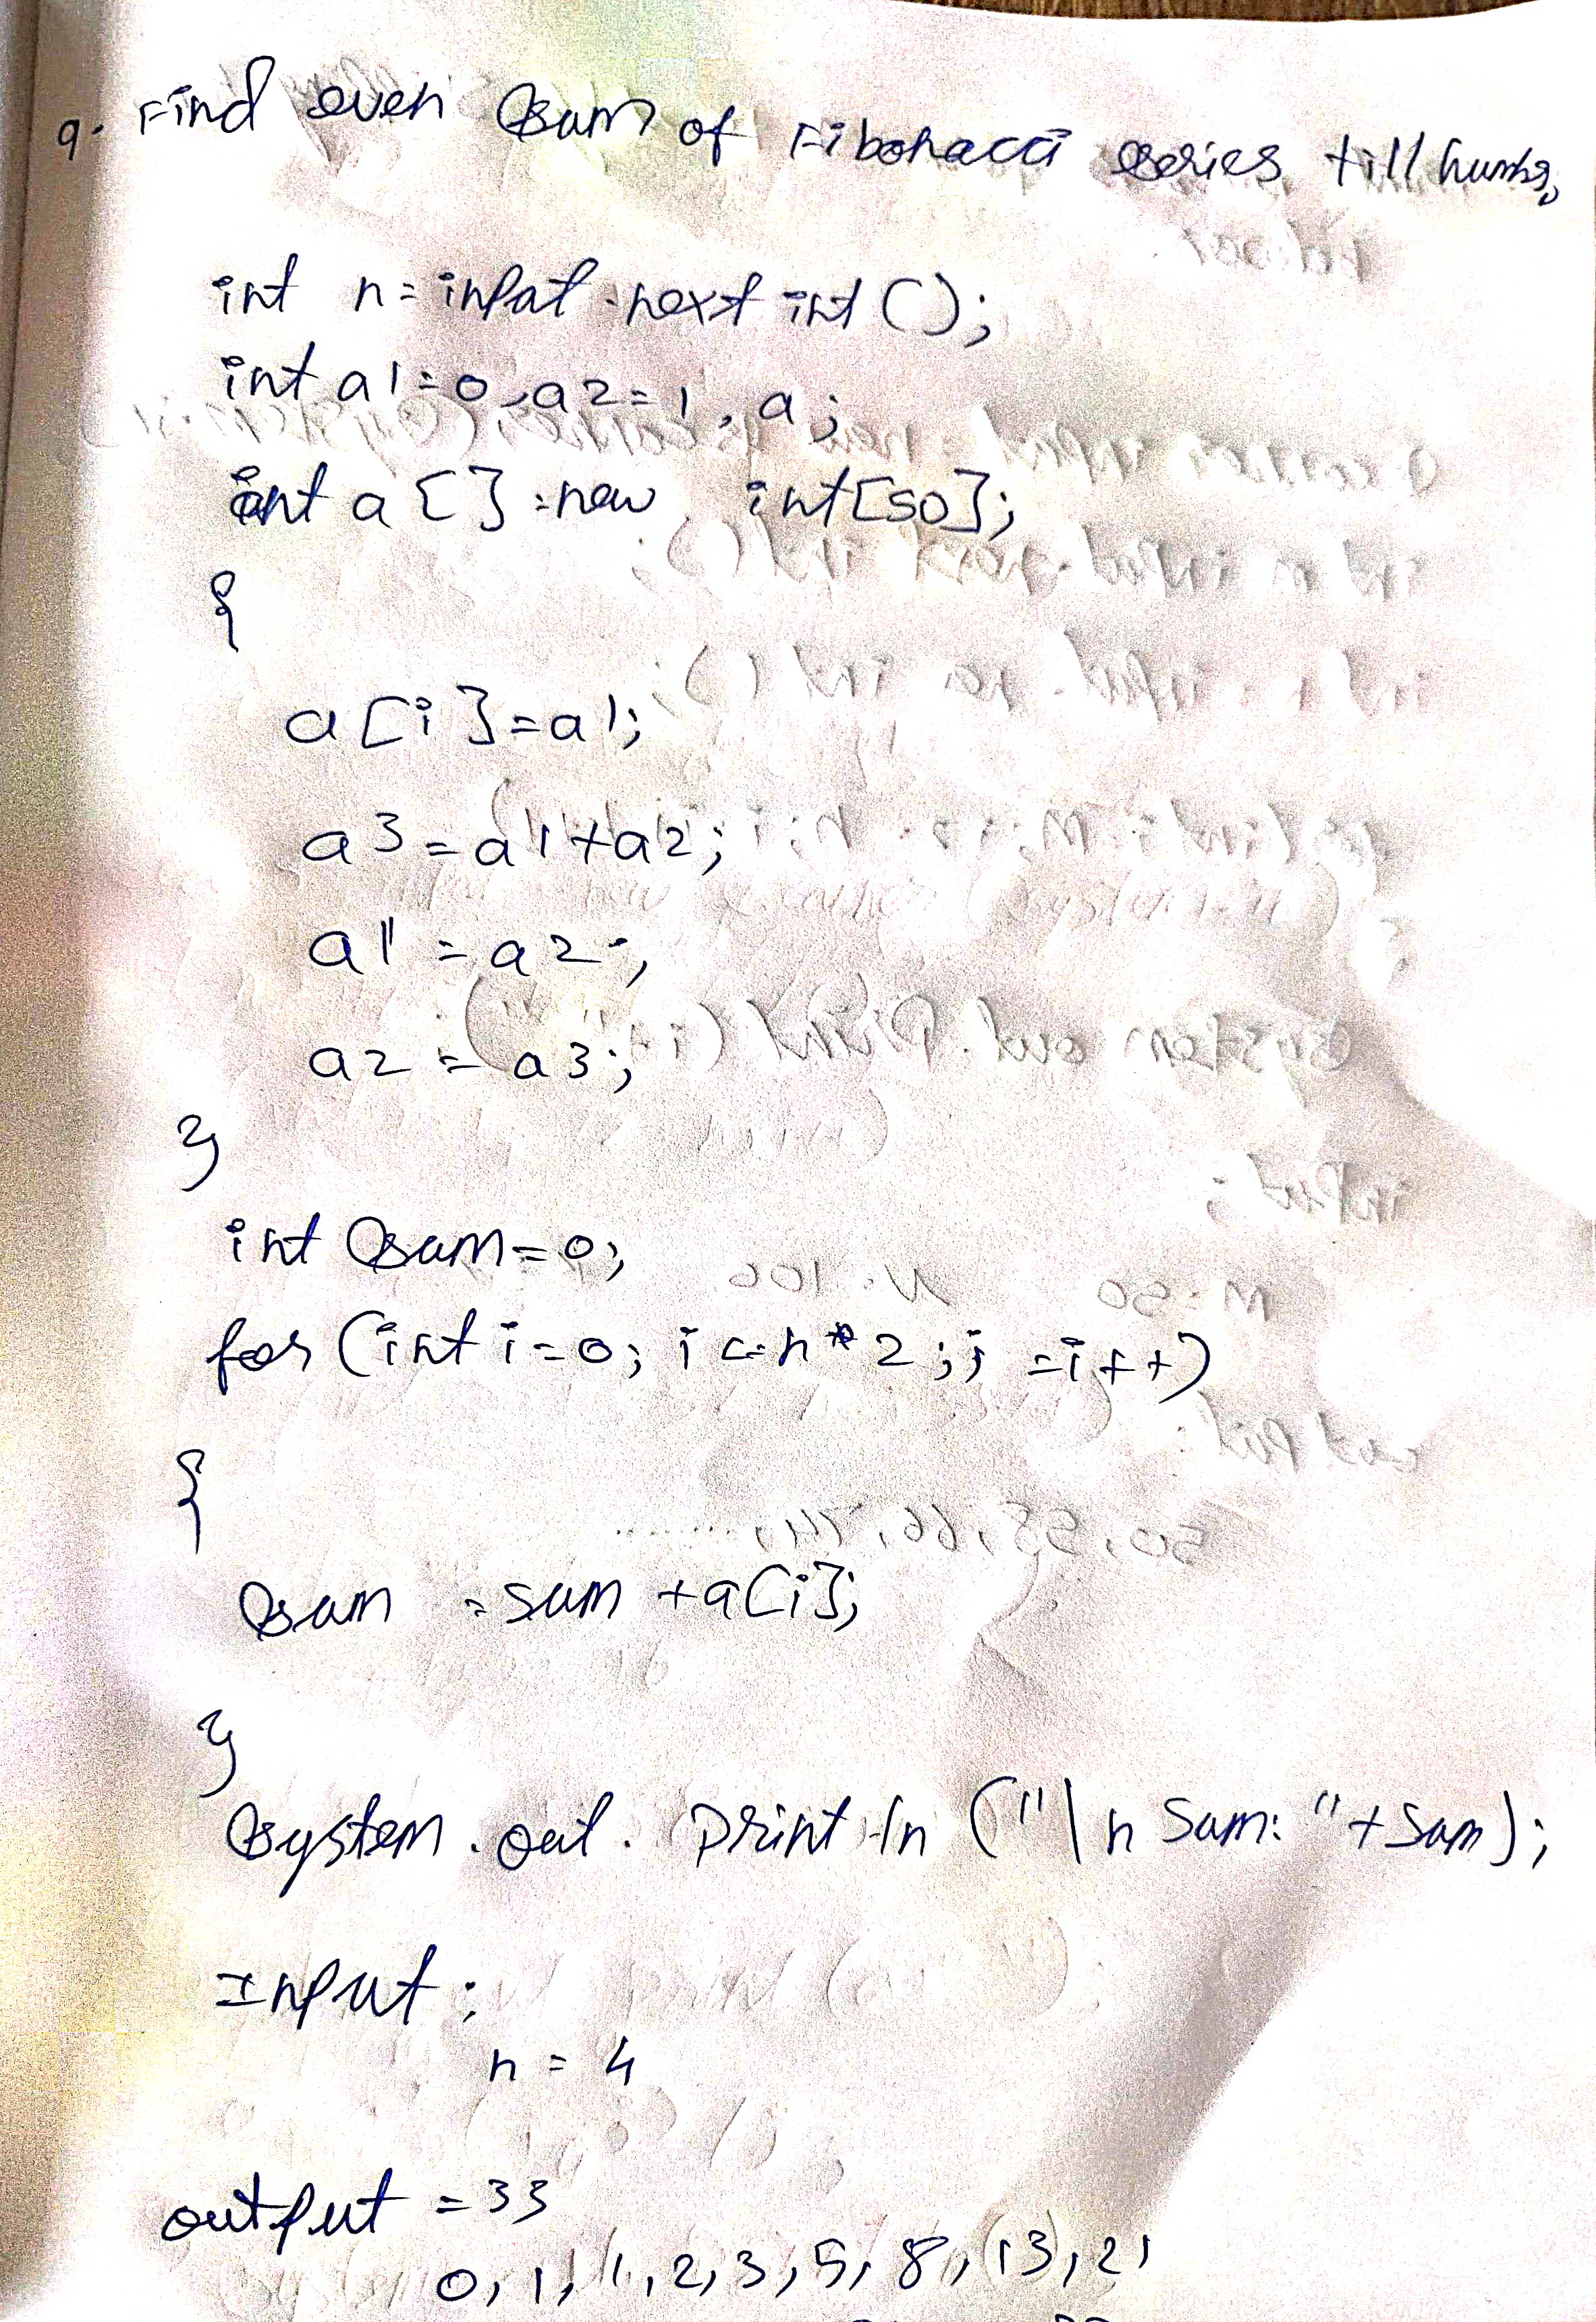 9. Find even sum of Fibonacci series till number
int n= input.next int ();
int a1=0, a2=1, a;
int a[]=new int[50];
{
a[i]=a1;
a3=a1+a2;
a1=a2;
a2=a3;
}
int sum=0;
for (int i=0; i<=n*2; i=i++)
{
sum =sum +a[i];
}
System.out.println ("\n Sum: "+Sum);
Input:
n=4
output =33
0, 1, 1, 2, 3, 5, 8, 13, 21